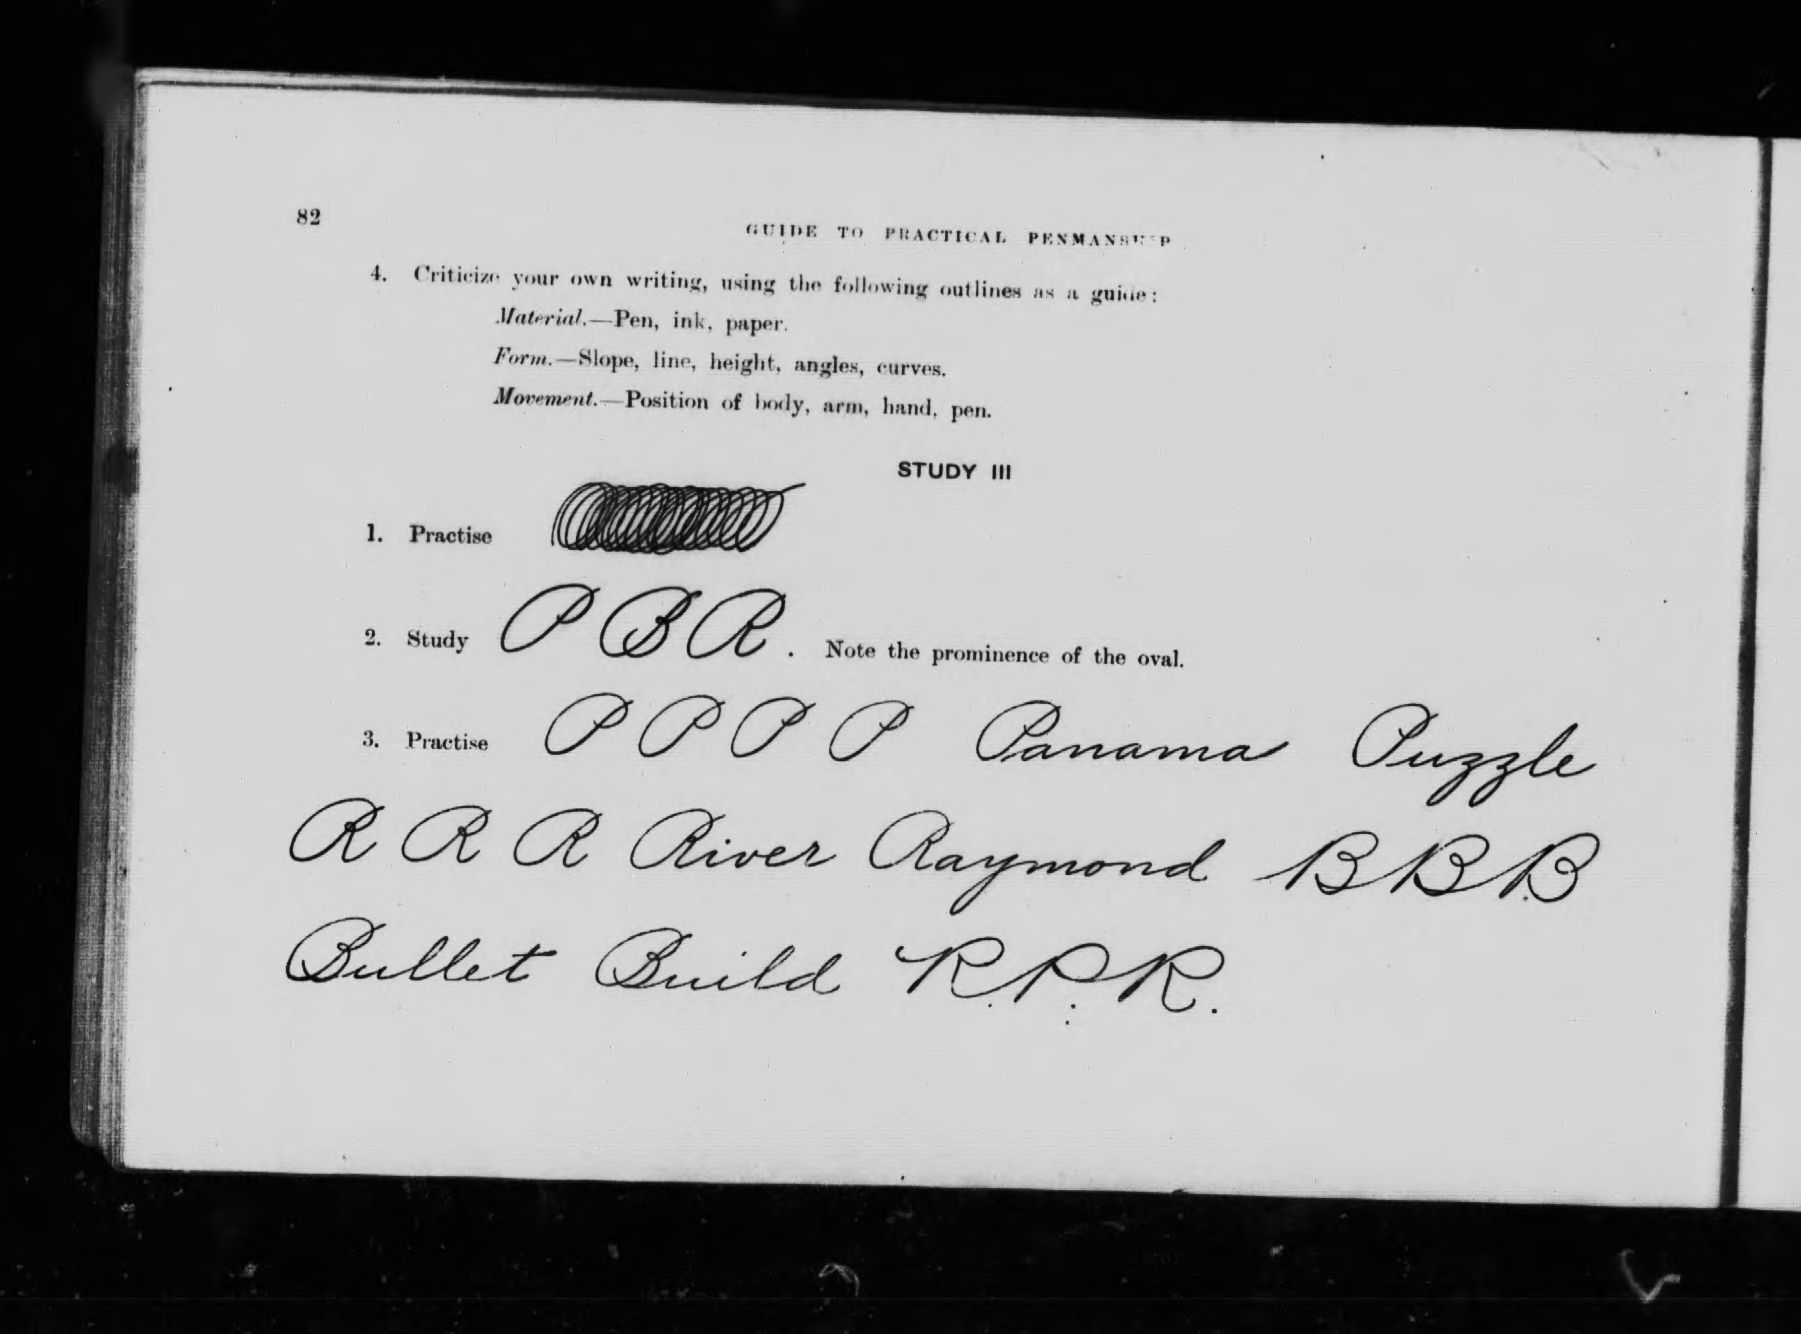 82
GUIDE TO PRACTICAL PENMANSHIP
4. Criticize your own writing, using the following outlines as a guide:
Material.—Pen, ink, paper.
Form.—Slope, line, height, angles, curves.
Movement.—Position of body, arm, hand, pen.
STUDY III
1. Practise
2. Study P B R. Note the prominence of the oval.
3. Practise P P P P Panama Puzzle
R R R River Raymond B B B
Bullet Build R. P. R.